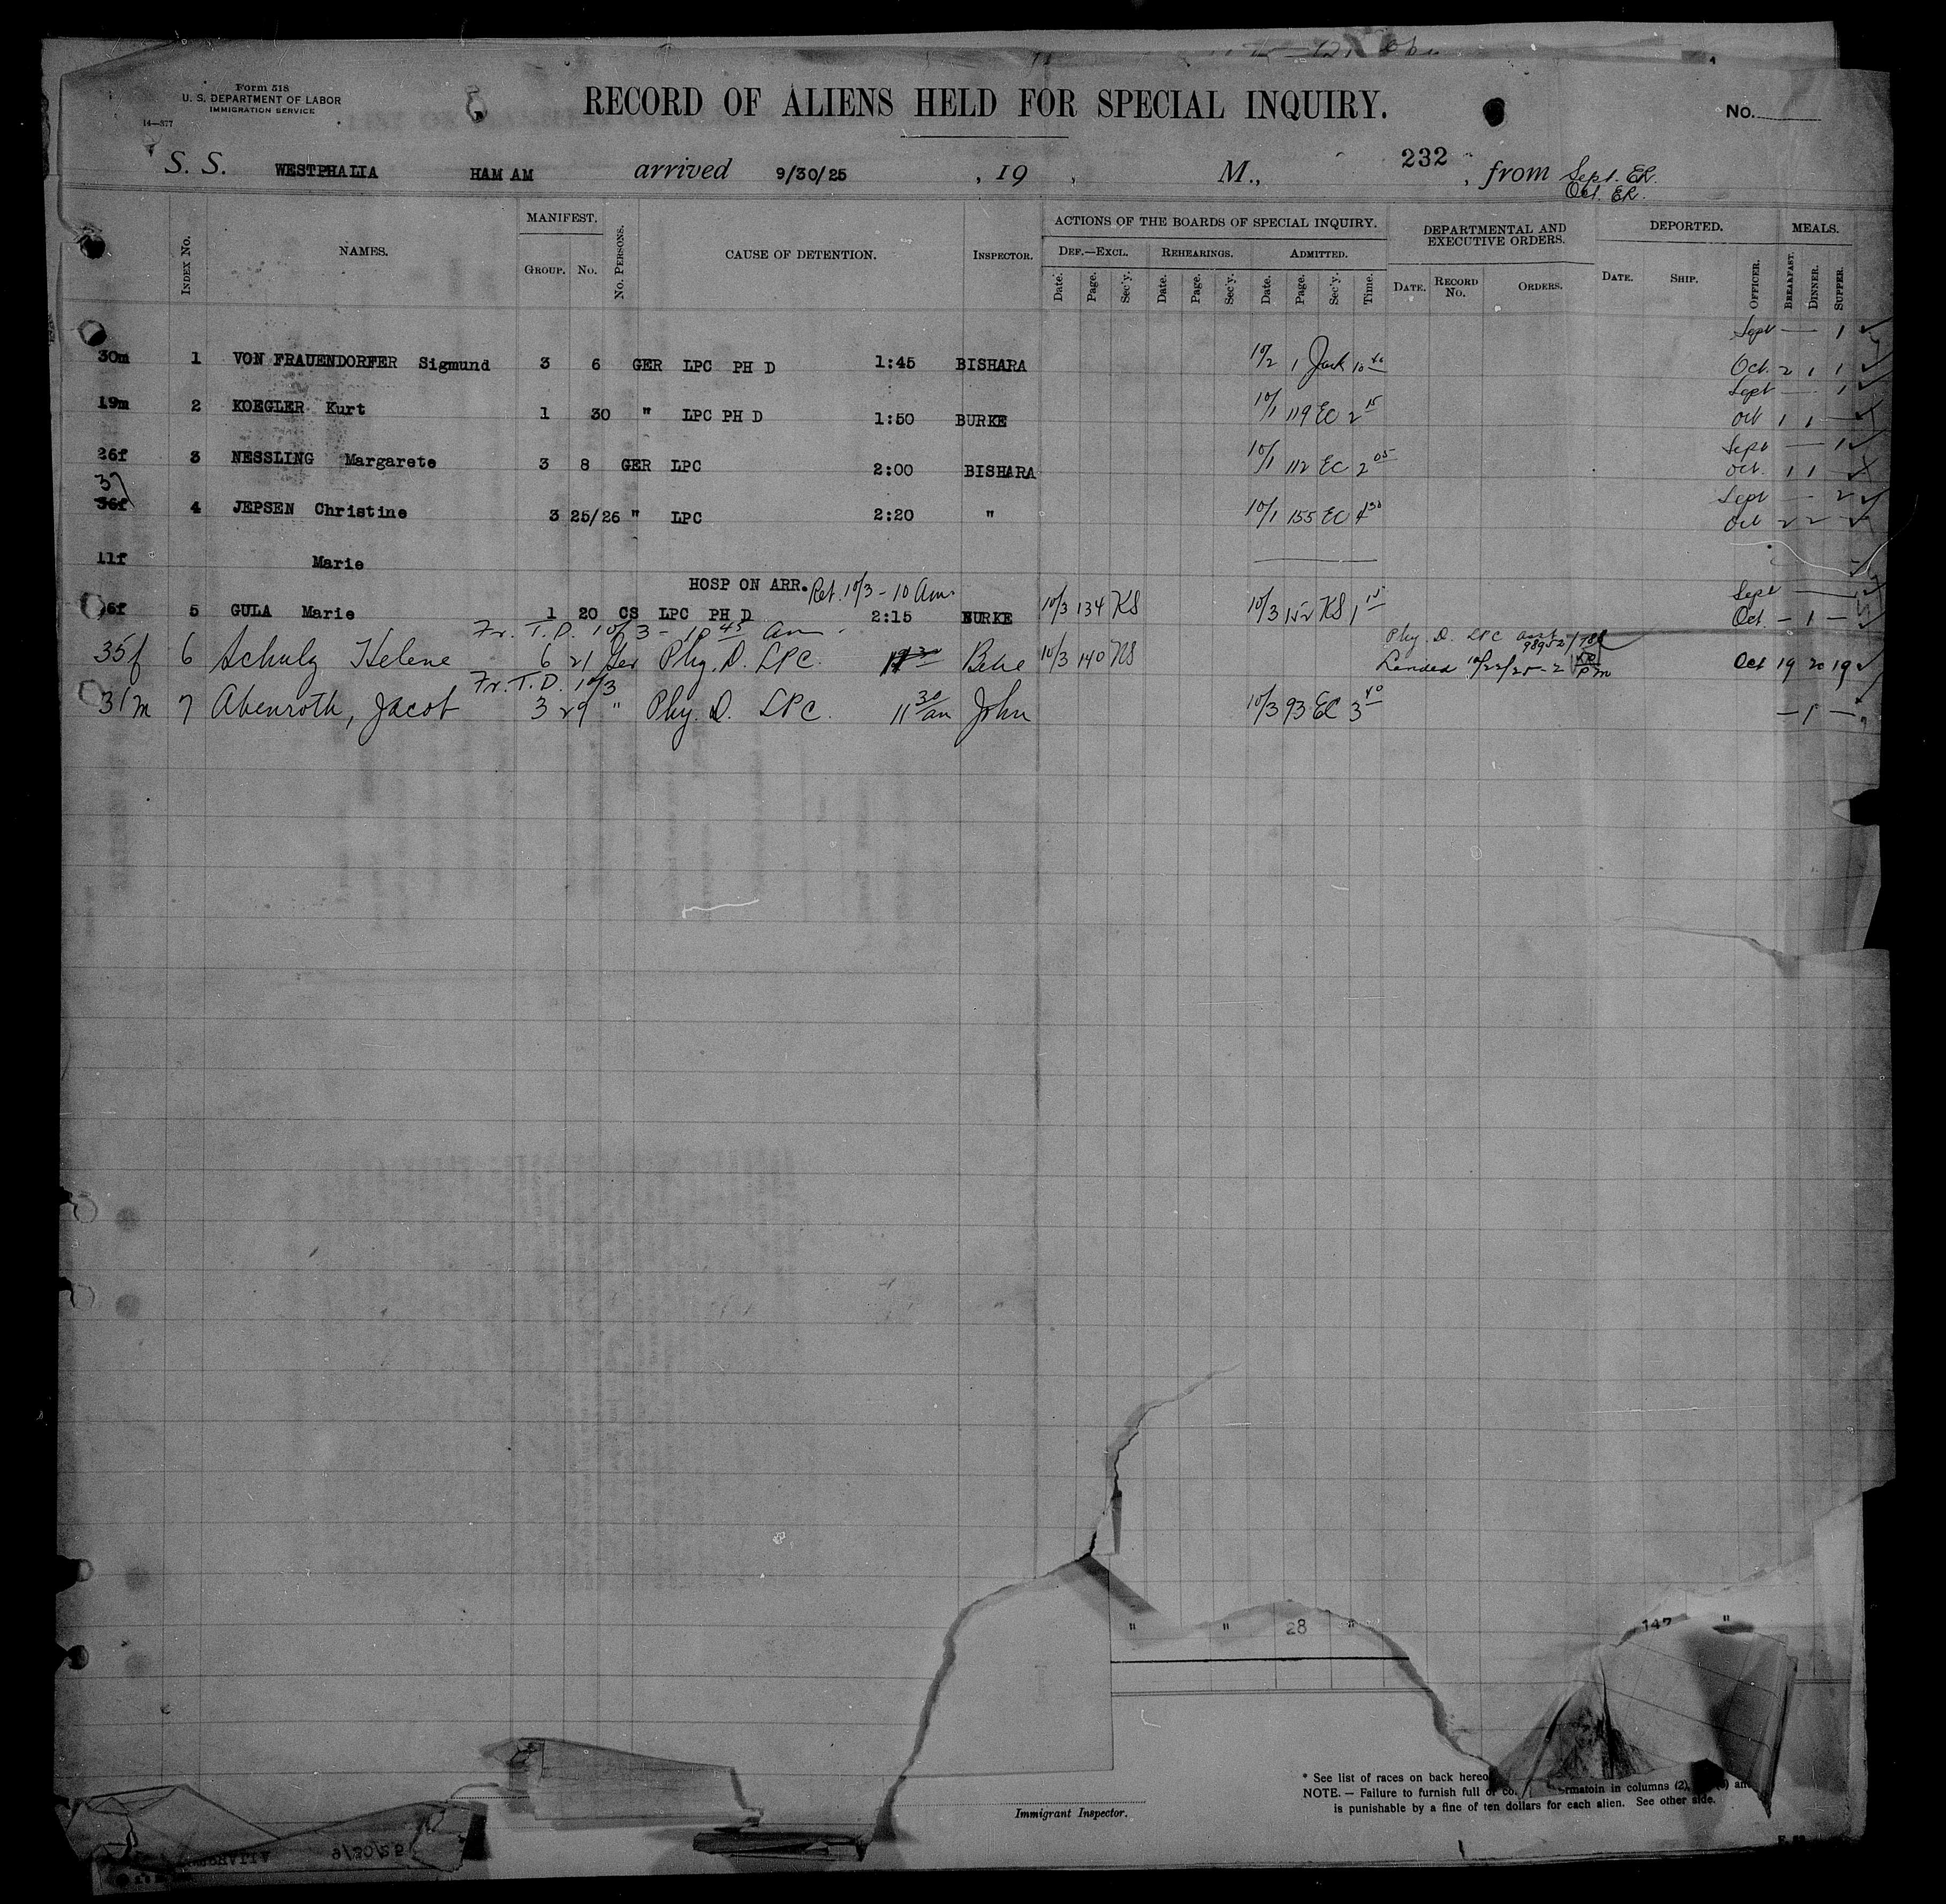 Form 518
U. S. DEPARTMENT OF LABOR
IMMIGRATION SERVICE
14—377
RECORD OF ALIENS HELD FOR SPECIAL INQUIRY.
No.
S. S. WESTPHALIA HAM AM arrived 9/30/25 , 19 , M., 232 , from Sept. ER.
Oct. ER.
Index No. NAMES. MANIFEST. Group. No. No. Persons. CAUSE OF DETENTION. Inspector. ACTIONS OF THE BOARDS OF SPECIAL INQUIRY. DEPARTMENTAL AND EXECUTIVE ORDERS. DEPORTED. MEALS.
Def.—Excl. Rehearings. Admitted.
Date. Page. Sec'y. Date. Page. Sec'y. Date. Page. Sec'y. Time. Date. Record No. Orders. Date. Ship. Officer. Breakfast. Dinner. Supper.
Sept — 1
30m 1 VON FRAUENDORFER Sigmund 3 6 GER LPC PH D 1:45 BISHARA 10/2 1 Jack 10 Oct. 2 1 1
Sept — 1
19m 2 KOEGLER Kurt 1 30 " LPC PH D 1:50 BURKE 10/1 119 EC 2 15 Oct 1 1 —
Sept — 1
26f 3 NESSLING Margarete 3 8 GER LPC 2:00 BISHARA 10/1 112 EC 2 05 Oct. 1 1 —
37 Sept — 2
36f 4 JEPSEN Christine 3 25/26 " LPC 2:20 " 10/1 155 EC 4 30 Oct 2 2 —
11f Marie
HOSP ON ARR. Ret. 10/3 - 10 Am. Sept —
6f 5 GULA Marie 1 20 CS LPC PH D 2:15 BURKE 10/3 134 KS 10/3 152 KS 1 15 Oct. — 1 —
Fr. T. D. 10/3 - 10 45 am. Phy. D. LPC
35f 6 Schulz Helene 6 21 Ger Phy. D. LPC. 10/3 140 Landed 10/22/25 - 2 Pm Oct 19 20 19
Fr. T. D. 10/3
31m 7 Abenroth, Jacob 3 29 " Phy. D. LPC. 11 30 an John 10/3 93 EC 3 40 — 1 —
" " 28 " 147 "
* See list of races on back hereo
NOTE. — Failure to furnish full or co rmatoin in columns (2), an
is punishable by a fine of ten dollars for each alien. See other side.
Immigrant Inspector.